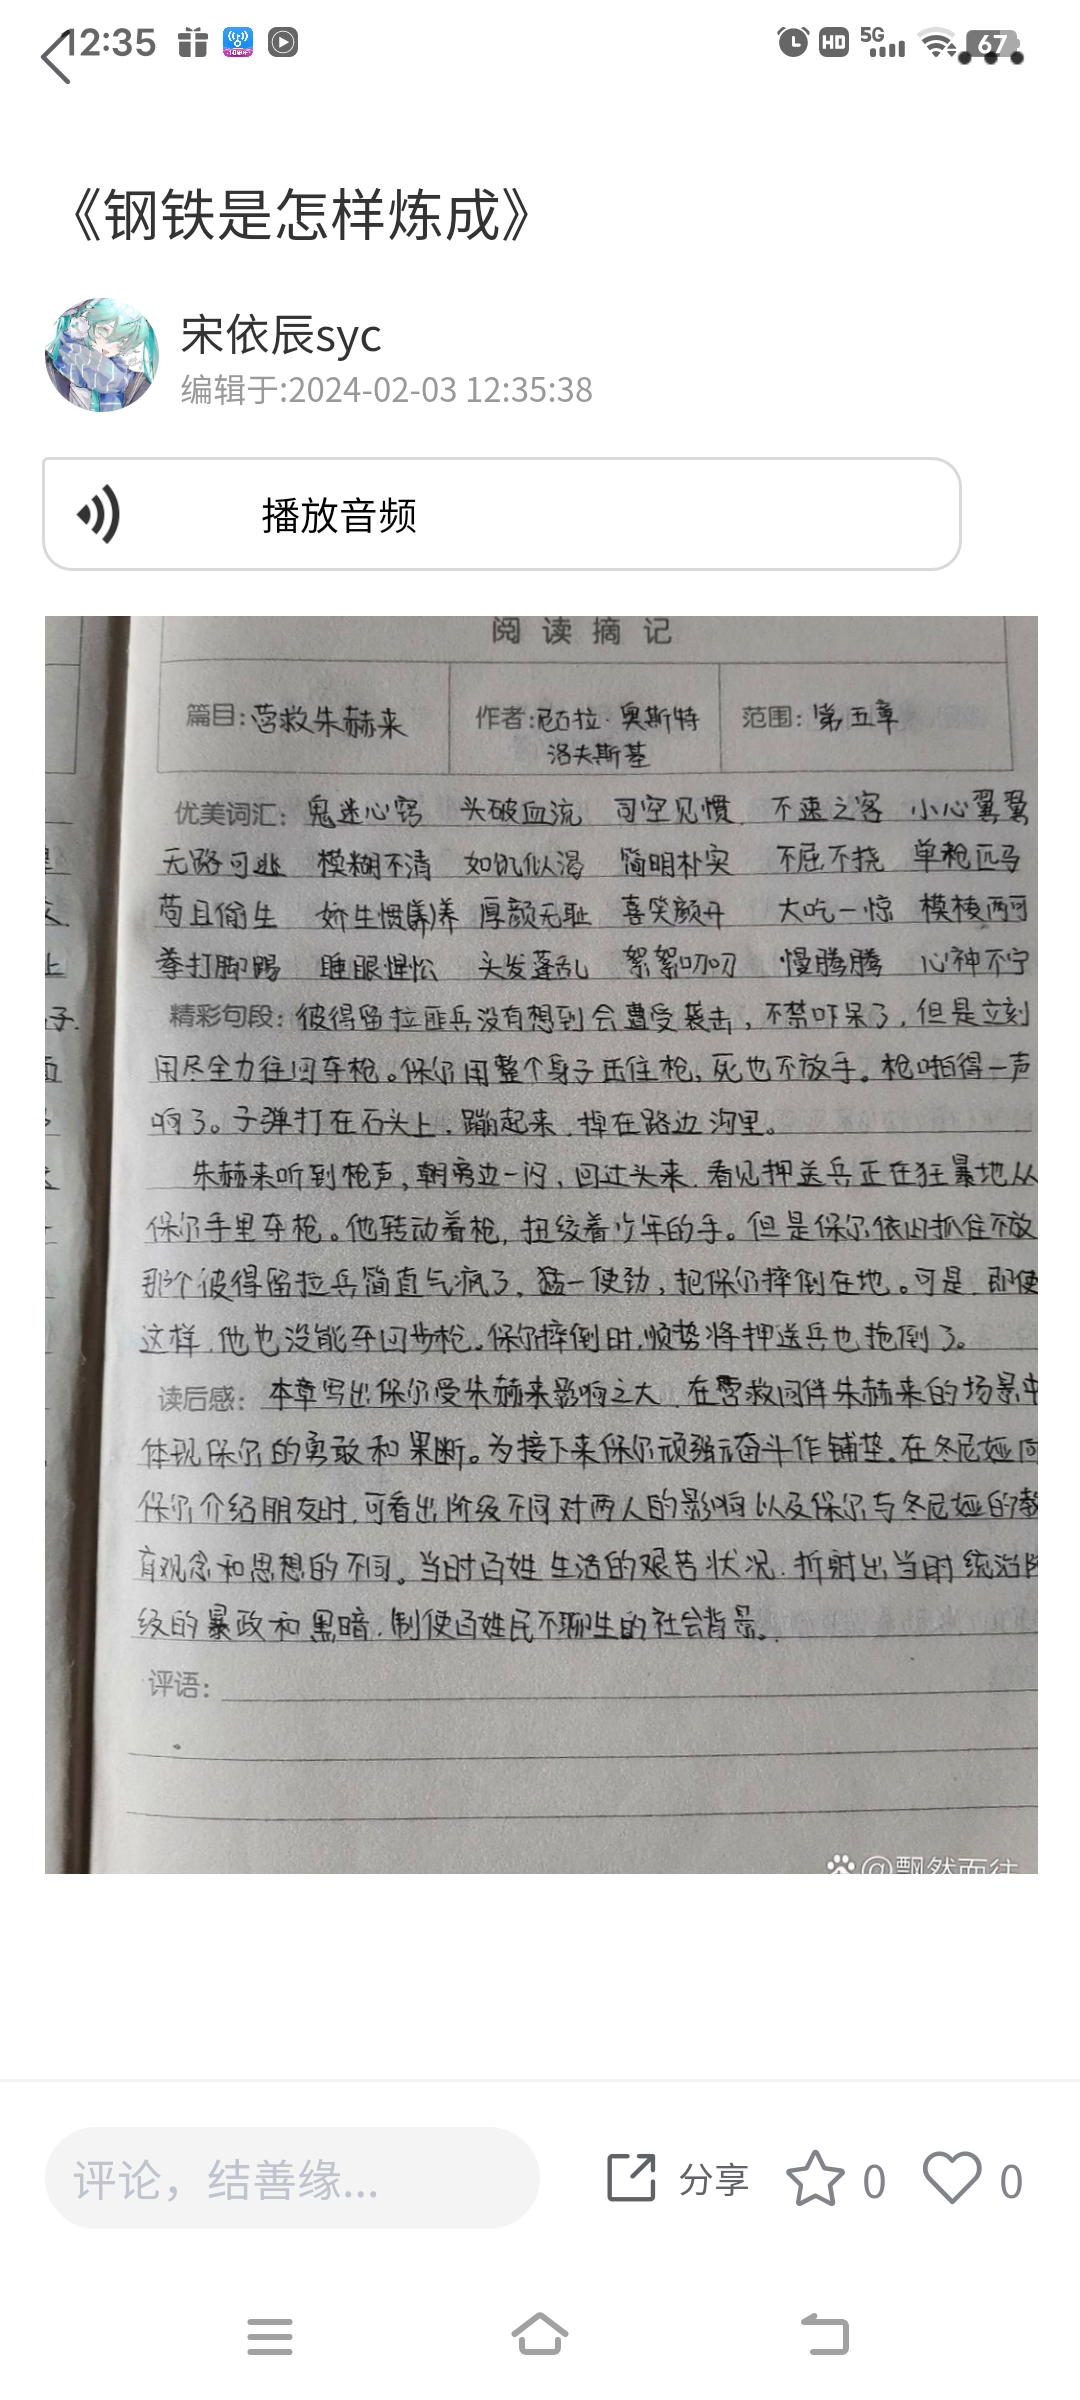 12:35 HD 5G 67
《钢铁是怎样炼成》
宋依辰syc
编辑于:2024-02-03 12:35:38
播放音频
阅读摘记
篇目:营救朱赫来 作者:尼古拉·奥斯特洛夫斯基 范围:第五章
优美词汇: 鬼迷心窍 头破血流 司空见惯 不速之客 小心翼翼
无路可逃 模糊不清 如饥似渴 简明朴实 不屈不挠 单枪匹马
苟且偷生 娇生惯养 厚颜无耻 喜笑颜开 大吃一惊 模棱两可
拳打脚踢 睡眼惺忪 头发蓬乱 絮絮叨叨 慢腾腾 心神不宁
精彩句段: 彼得留拉匪兵没有想到会遭受袭击,不禁吓呆了,但是立刻
用尽全力往回夺枪。保尔用整个身子压住枪,死也不放手。枪啪得一声
响了。子弹打在石头上,蹦起来,掉在路边沟里。
朱赫来听到枪声,朝旁边一闪,回过头来,看见押送兵正在狂暴地从
保尔手里夺枪。他转动着枪,扭绞着少年的手。但是保尔依旧抓住不放
那个彼得留拉兵简直气疯了,猛一使劲,把保尔摔倒在地。可是,即使
这样,他也没能夺回步枪。保尔摔倒时,顺势将押送兵也拖倒了。
读后感: 本章写出保尔受朱赫来影响之大,在营救同伴朱赫来的场景中
体现保尔的勇敢和果断。为接下来保尔顽强奋斗作铺垫。在冬尼娅向
保尔介绍朋友时,可看出阶级不同对两人的影响以及保尔与冬尼娅的教
育观念和思想的不同。当时百姓生活的艰苦状况,折射出当时统治阶
级的暴政和黑暗,制使百姓民不聊生的社会背景。
评语:
@飘然而往
评论，结善缘... 分享 0 0